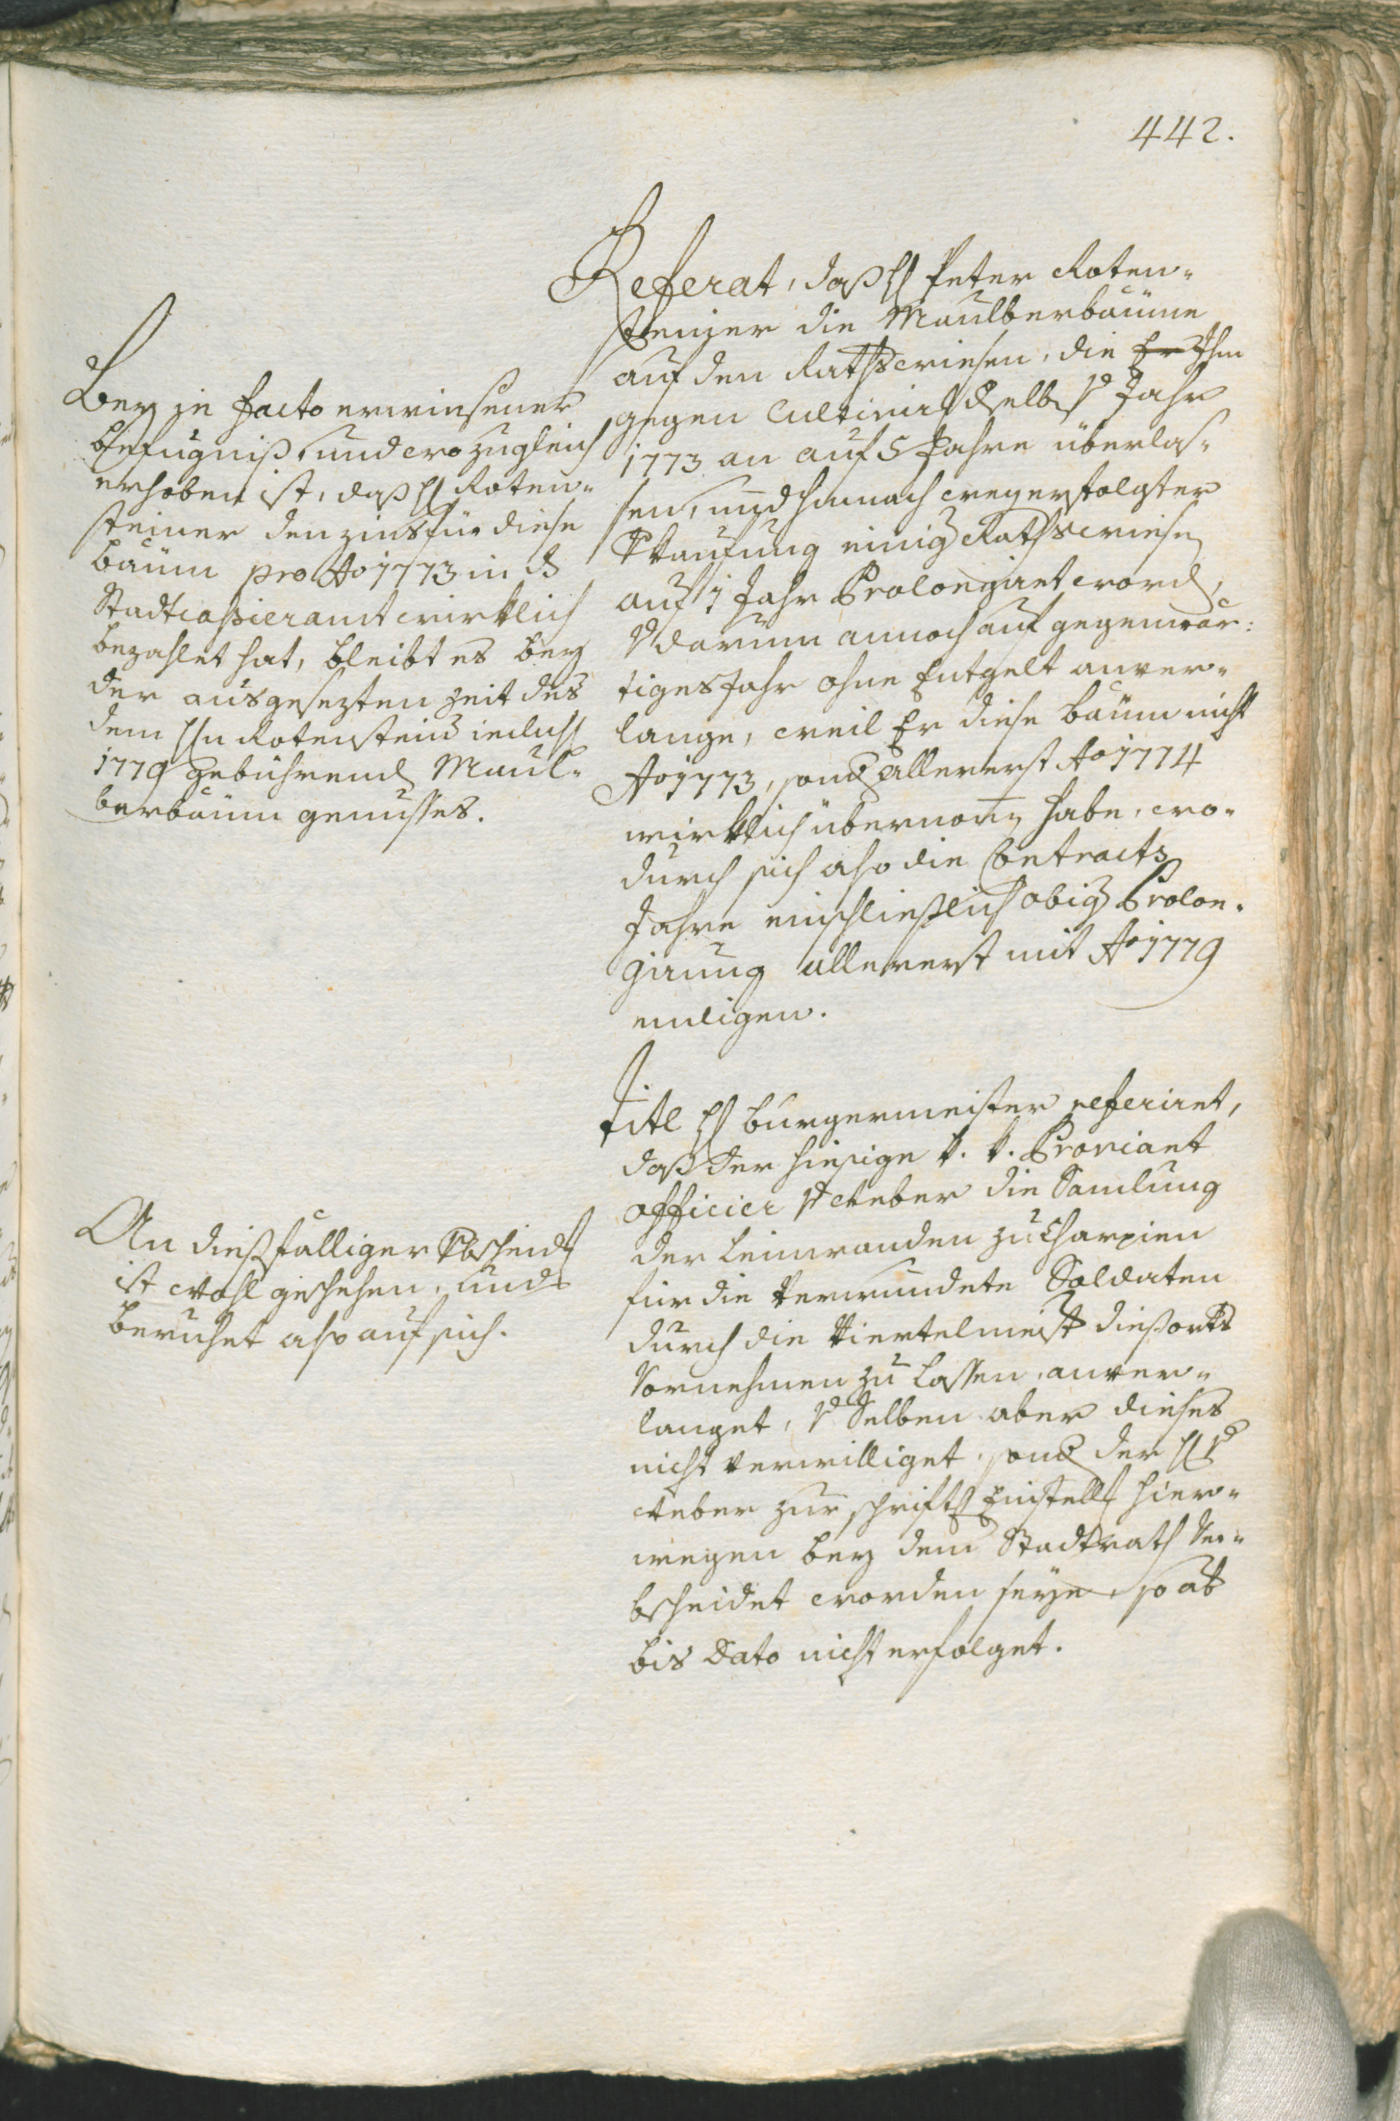 442.
Referat, daß H Peter Roten-
steiner die Maulberbäume
auf den Rathswiesen, die Er Ihm
gegen Cultivir derselben Jahr
1773 an auf 5 Jahre überlas-
sen, und hernach wegen erfolgter
Verkaufung einig Rathswiesen
auf 1 Jahr Prolongiret word,
darum annoch auf gegenwär-
tiges Jahr ohne Entgelt anver-
lange, weil Er diese Bäum nicht
Ao 1773, sond allererst Ao 1774
wirklich übernom̄en habe, wo-
durch sich also die Contracts
Jahre einschließlich obig Prolon-
girung allererst mit Ao 1779
endigen.
Bey in facto erwiesener
Befugniß, und wo zugleich
erhoben ist, daß H Roten-
steiner den zins für diese
Bäum pro Ao 1773 in
Stadtcaßieramt wirklich
bezahlet hat, bleibt es bey
der ausgesezten zeit des
dem Hn Rotensteiner
1779 gebührend Maul-
berbäum genusses.
Titl H Burgermeister referiret,
daß der hiesige k. k. Proviant
officier v Weber die Samlung
der Leinwanden zu Charpien
für die verwundete Soldaten
durch die Viertelmeister dießorts
vornehmen zu lassen, anver-
langet, Selben aber dieses
nicht verwilliget, sond der H v
Weber zur schriftl Einstell hier-
wegen bey dem Stadtrath ver-
bscheidet worden seye, so ab
bis Dato nicht erfolget.
An dießfälliger Verbscheid
ist wohl geschehen, und
beruhet also auf sich.